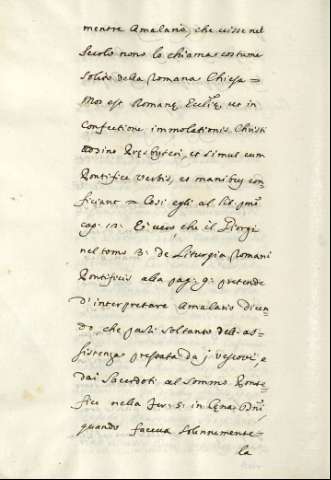 mentre Amalario, che visse nel
Secolo nono lo chiama costume
solito della Romana Chiesa =
Mos est Romanę Ecclię, ut in
Confectione immolationis Christi
adsint Pręsbyteri, et simul cum
Pontifice verbis, et manibus con-
ficiant = Così egli al lib. pmo
cap. 12. Ei vero, che il Giorgi
nel tomo 3. de Liturgia Romani
Pontificis alla pag. 9. pretende
d'interpretare Amalario dicen-
do, che parli soltanto dell'as-
sistenza prestata da i Vescovi, e
dai Sacerdoti al Sommo Ponte-
fice nella Fer. 5. in Cęna Dni,
quando faceva solennemente
la